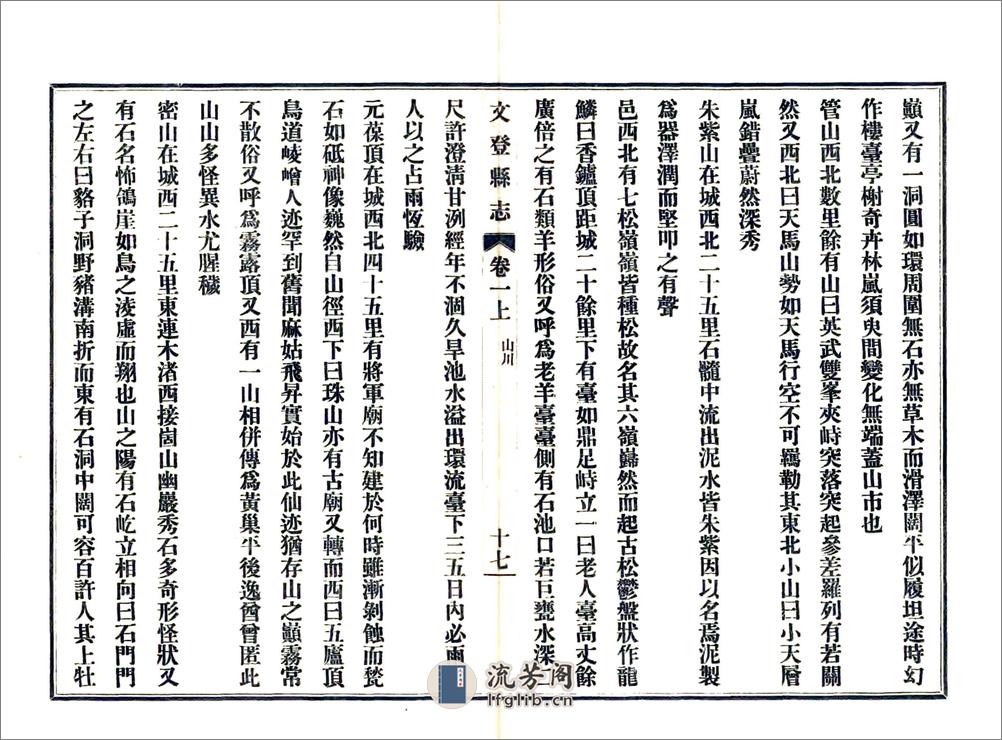 巔又有一洞圓如環周圍無石亦無草木而滑澤闊平似履坦途時幻
作樓臺亭榭奇卉林嵐須臾間變化無端蓋山市也
管山西北數里餘有山曰英武雙峯夾峙突落突起參差羅列有若關
然又西北曰天馬山勢如天馬行空不可羈勒其東北小山曰小天層
嵐錯疊蔚然深秀
朱紫山在城西北二十五里石髓中流出泥水皆朱紫因以名焉泥製
爲器澤潤而堅叩之有聲
邑西北有七松嶺嶺皆種松故名其六嶺巋然而起古松鬱盤狀作龍
鱗曰香鑪頂距城二十餘里下有臺如鼎足峙立一曰老人臺高丈餘
廣倍之有石類羊形俗又呼爲老羊臺臺側有石池口若巨甕水深二
文登縣志 卷一上 山川 十七
尺許澄清甘洌經年不涸久旱池水溢出環流臺下三五日內必雨
人以之占雨恆驗
元葆頂在城西北四十五里有將軍廟不知建於何時雖漸剝蝕而甃
石如砥神像巍然自山徑西下曰珠山亦有古廟又轉而西曰五廬頂
鳥道崚嶒人迹罕到舊聞麻姑飛昇實始於此仙迹猶存山之巔霧常
不散俗又呼爲霧露頂又西有一山相傳爲黃巢平後逸酋曾匿此
山山多怪異水尤腥穢
密山在城西二十五里東連木渚西接崮山幽巖秀石多奇形怪狀又
有石名怖鴿崖如鳥之淩虛而翔也山之陽有石屹立相向曰石門門
之左右曰貉子洞野豬溝南折而東有石洞中闊可容百許人其上牡
流芳阁
lfglib.cn